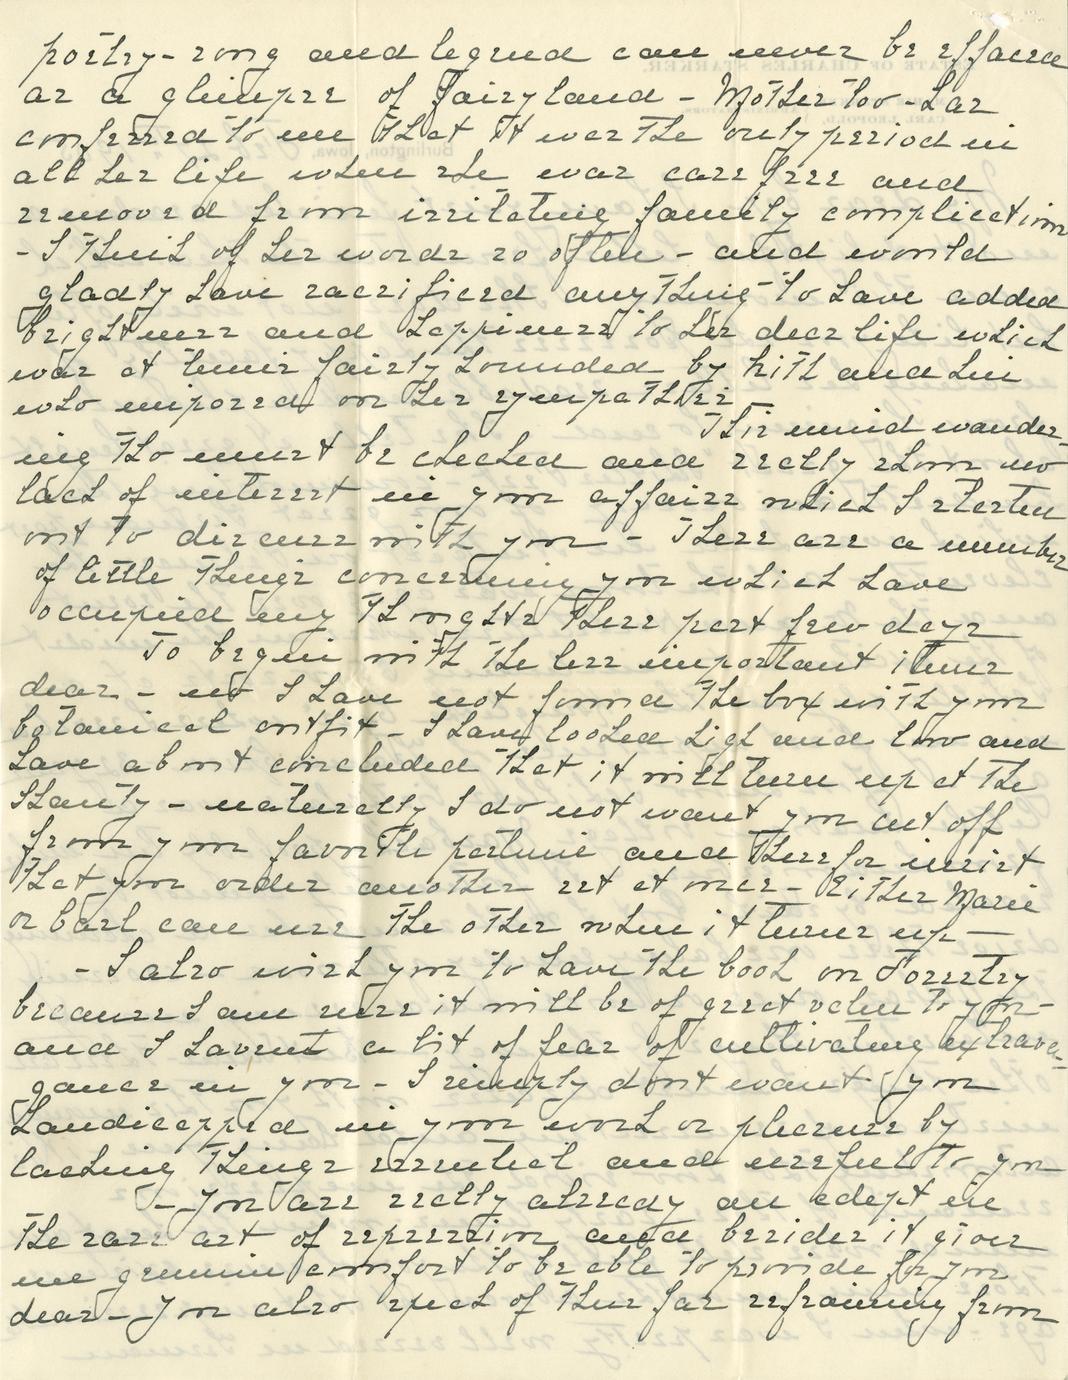 poetry – song and legend can never be effaced
as a glimpse of fairyland – Mother too – has
confessed to me that it was the only period in
all her life when she was care free and
removed from irritating family complication
– I think of her words so often – and would
gladly have sacrificed anything to have added
brightness and happiness to her dear life which
was at times fairly hounded by kith and kin
who imposed on her sympathies
This mind wander-
ing tho must be checked and really shows no
lack of interest in your affairs which I started
out to discuss with you – There are a number
of little things concerning you which have
occupied my thoughts these past few days
To begin with the less important items
dear – no I have not found the box with your
botanical outfit – I have looked high and low and
have about concluded that it will turn up at the
Shanty – naturally I do not want you cut off
from your favorite pastime and therefor insist
that you order another set at once – Either Marie
or Carl can use the other when it turns up –
– I also wish you to have the book on Forestry
because I am sure it will be of great value to you –
and I havent a bit of fear of cultivating extrava-
gance in you – I simply dont want you
handicapped in your work or pleasure by
lacking things essential and useful to you
– You are really already an adept in
the rare art of repression and besides it gives
me genuine comfort to be able to provide for you
dear – You also speak of thus far refraining from
ESTATE OF CHARLES STARKER,
CARL LEOPOLD,
Burlington, Iowa,